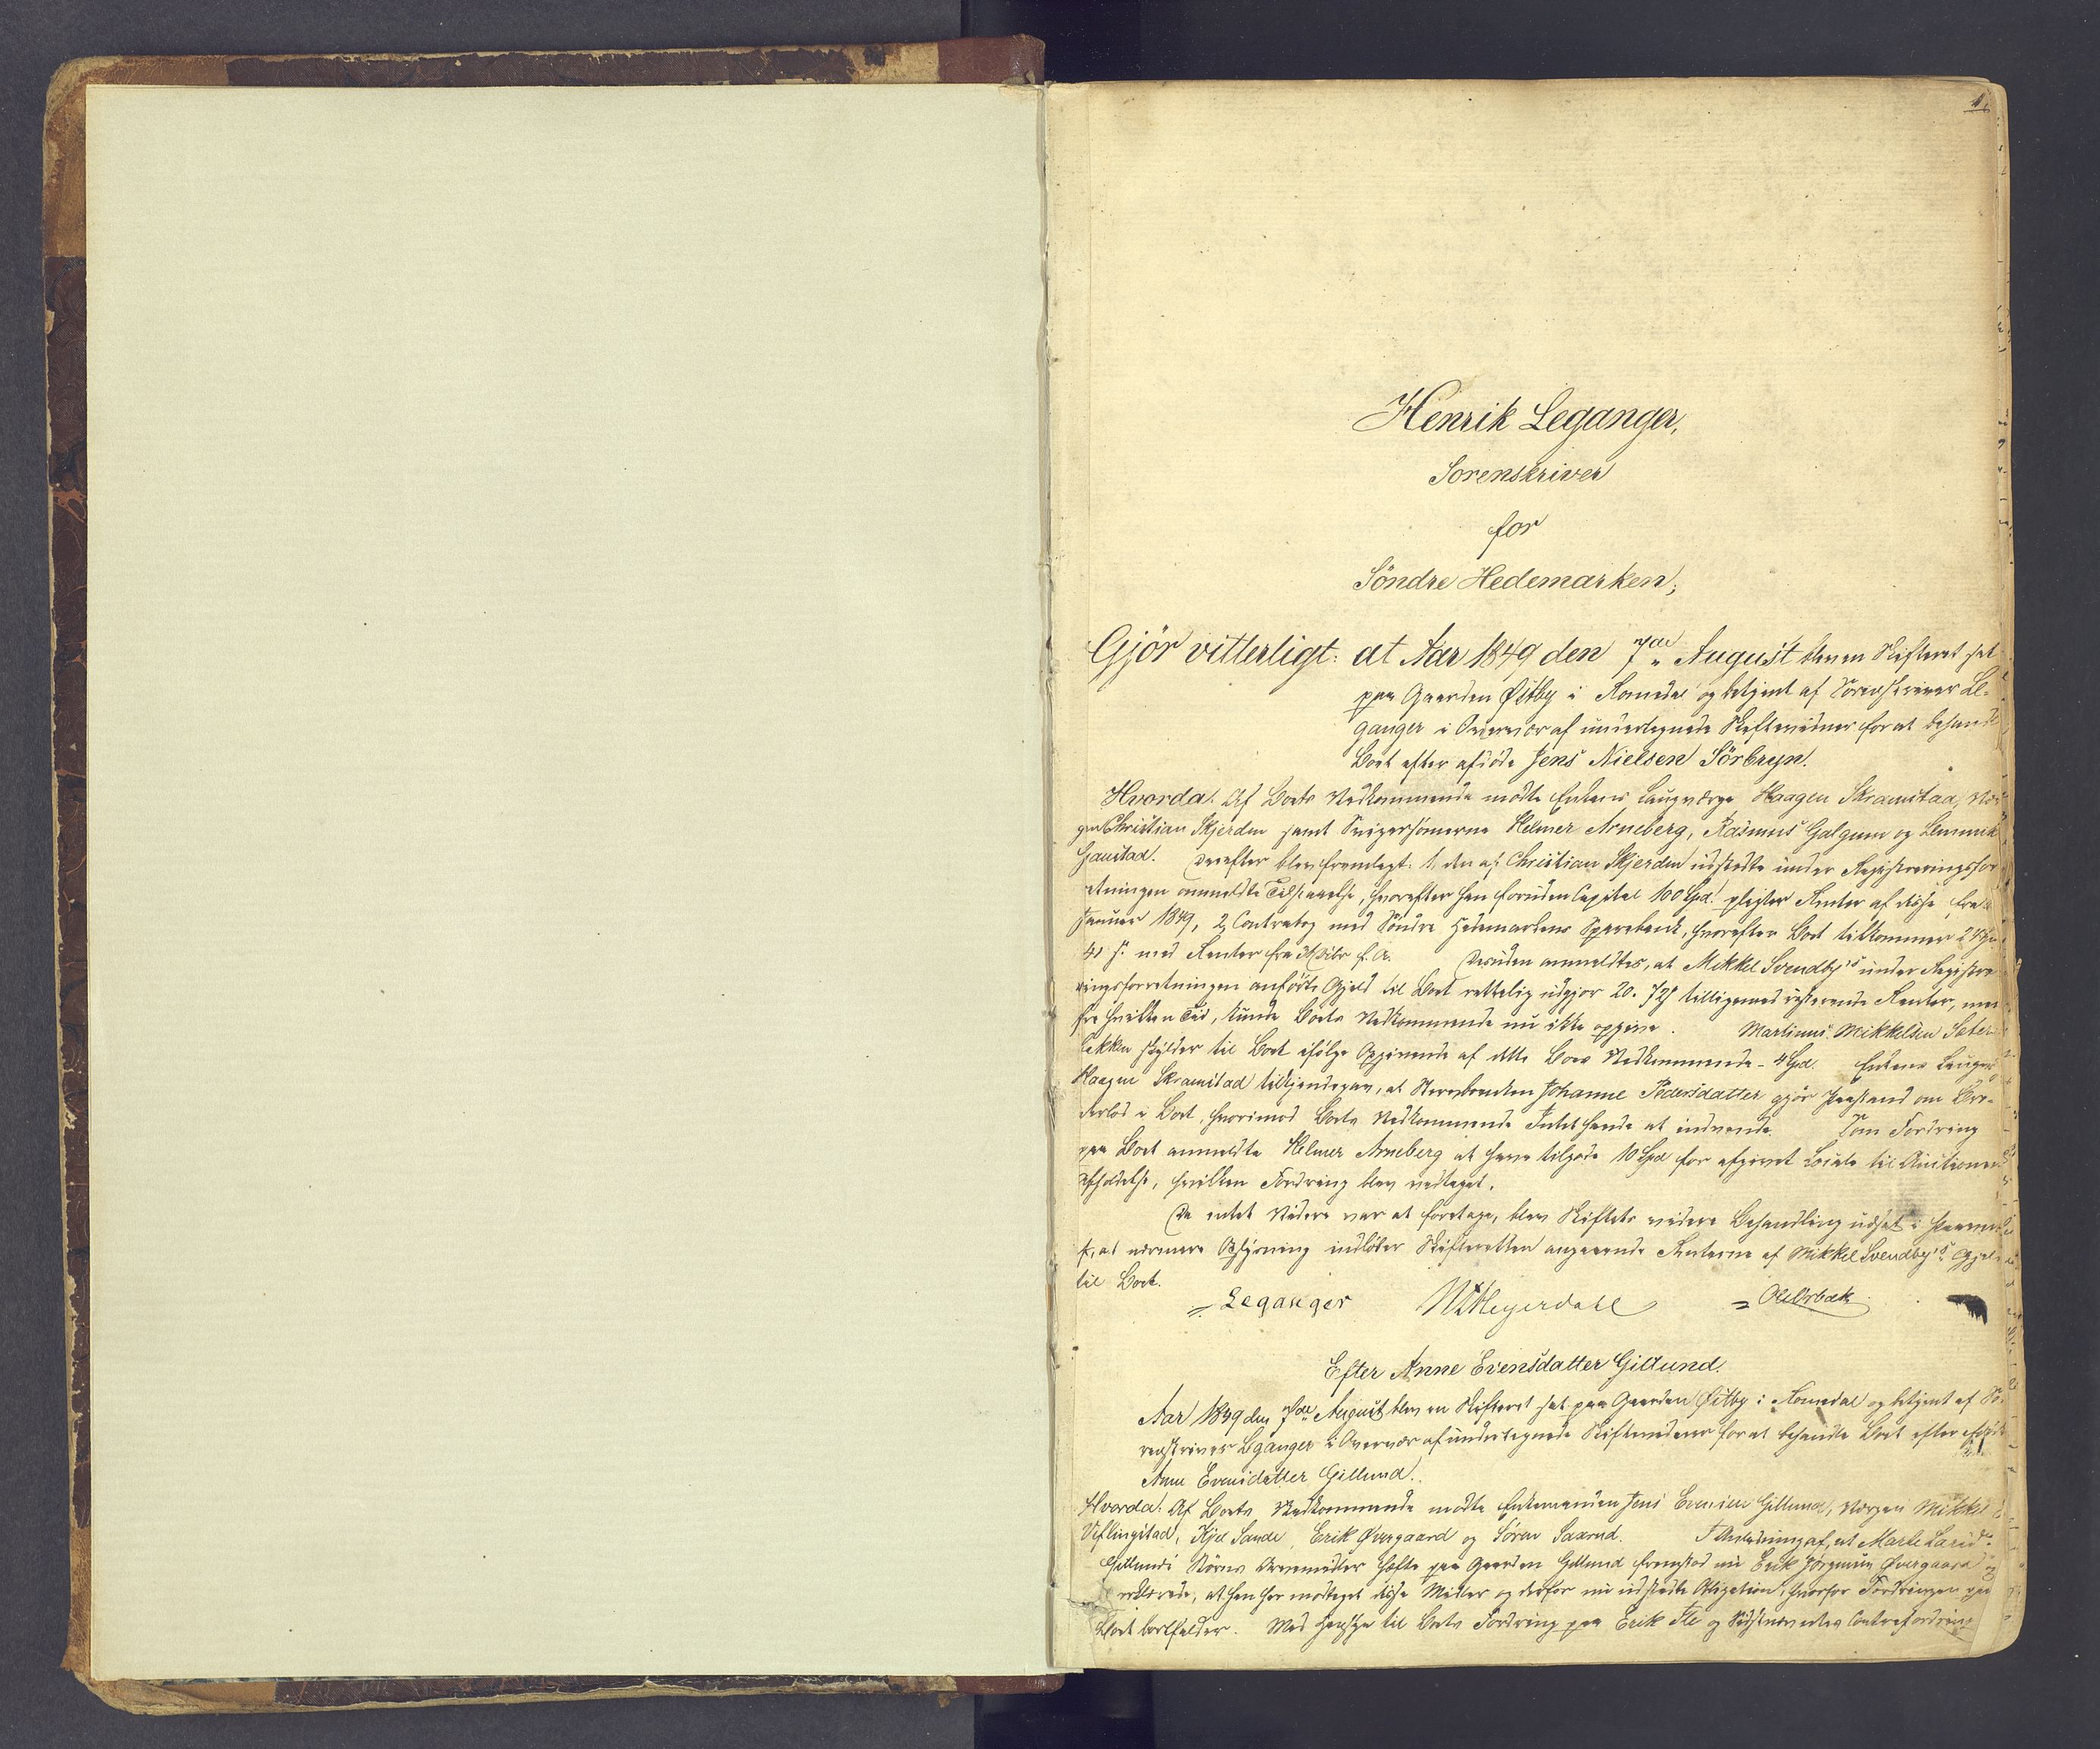 1.
Henrik Leganger,
Sorenskriver
for
Söndre Hedemarken;
Gjör vitterligt: at Aar 1849 den 7de August blev en Skifteret sat
paa Gaarden Østby i Romedal og betjent af Sorenskriver Le-
ganger i Overvær af undertegnede Skiftevidner for at behandle
Boet efter afdöde Jens Nielsen Sörbryn.
Hvorda: Af Boets Vedkommende mödte Enkens Laugværge Haagen Skramstad, Vær-
gen Christian Skjerden samt Svigersönnerne Helmer Arneberg, Rasmus Galgum og
Gaustad. Derefter blev fremlagt: 1, den af Christian Skjerden udstedte under Registreringsfor-
retningen anmeldte Tilstaaelse, hvorefter han foruden Capital 100 Spd. pligter Renter af disse fra
Januar 1849, 2, Contrabog med Söndre Hedemarkens Sparebank, hvorefter Boet tilkommer 24
41 s. med Renter fra f. A. Desuden anmeldtes, at Mikkel Svendby's under Registre-
ringsforretningen anförte Gjeld til Boet rettelig udgjör 20. 72 s tilligemed resterende Renter, men
fra hvilken Tid, kunde Boets Vedkommende nu ikke opgive. Martinus Mikkelsen Sæter-
bakken skylder til Boet ifölge Opgivende af dets Boes Vedkommende - 4 Spd. Enkens Laugv.
Haagen Skramstad tilkjendegav, at Stervboenken Johanne Pedersdatter gjör Paastand om Bro-
derlod i Boet, hvorimod Boets Vedkommende Intet havde at indvende. Som Fordring
paa Boet anmeldte Helmer Arneberg at have tilgode 10 Spd for afgivet Locale til Auctionens
Afholdelse, hvilken Fordring blev vedtaget.
Da intet Videre var at foretage, blev Skiftets videre Behandling udsat i Paavente
af, at nærmere Oplysning indlöber Skifteretten angaaende Renterne af Mikkel Svendby's Gjeld
til Boet.
Leganger Heyerdahl O. Ulsbæk
Efter Anne Evensdatter Gillund.
Aar 1849 den 7de August blev en Skifteret sat paa Gaarden Østby i Romedal og betjent af So-
renskriver Leganger i Overvær af undertegnede Skiftevidner for at behandle Boet efter afdöde
Anne Evensdatter Gillund.
Hvorda: Af Boets Vedkommende mödte Enkemanden Jens Evensen Gillund, Værgen Mikkel
Viflingstad, Kjel Sande, Erik Øvergaard og Søren Saxrud. I Anledning af, at Marte Larsd.
Gillunds Börns Arvemidler hæfte paa Gaarden Gillund fremstod nu Erik Jörgensen Øvergaard og
erklærede, at han har modtaget disse Midler og derfor nu udstedte Obligation, hvorfor Fordringen paa
Boet bortfalder. Med Hensyn til Boets Fordring paa Erik Ile og Sidstnævntes Contrafordring